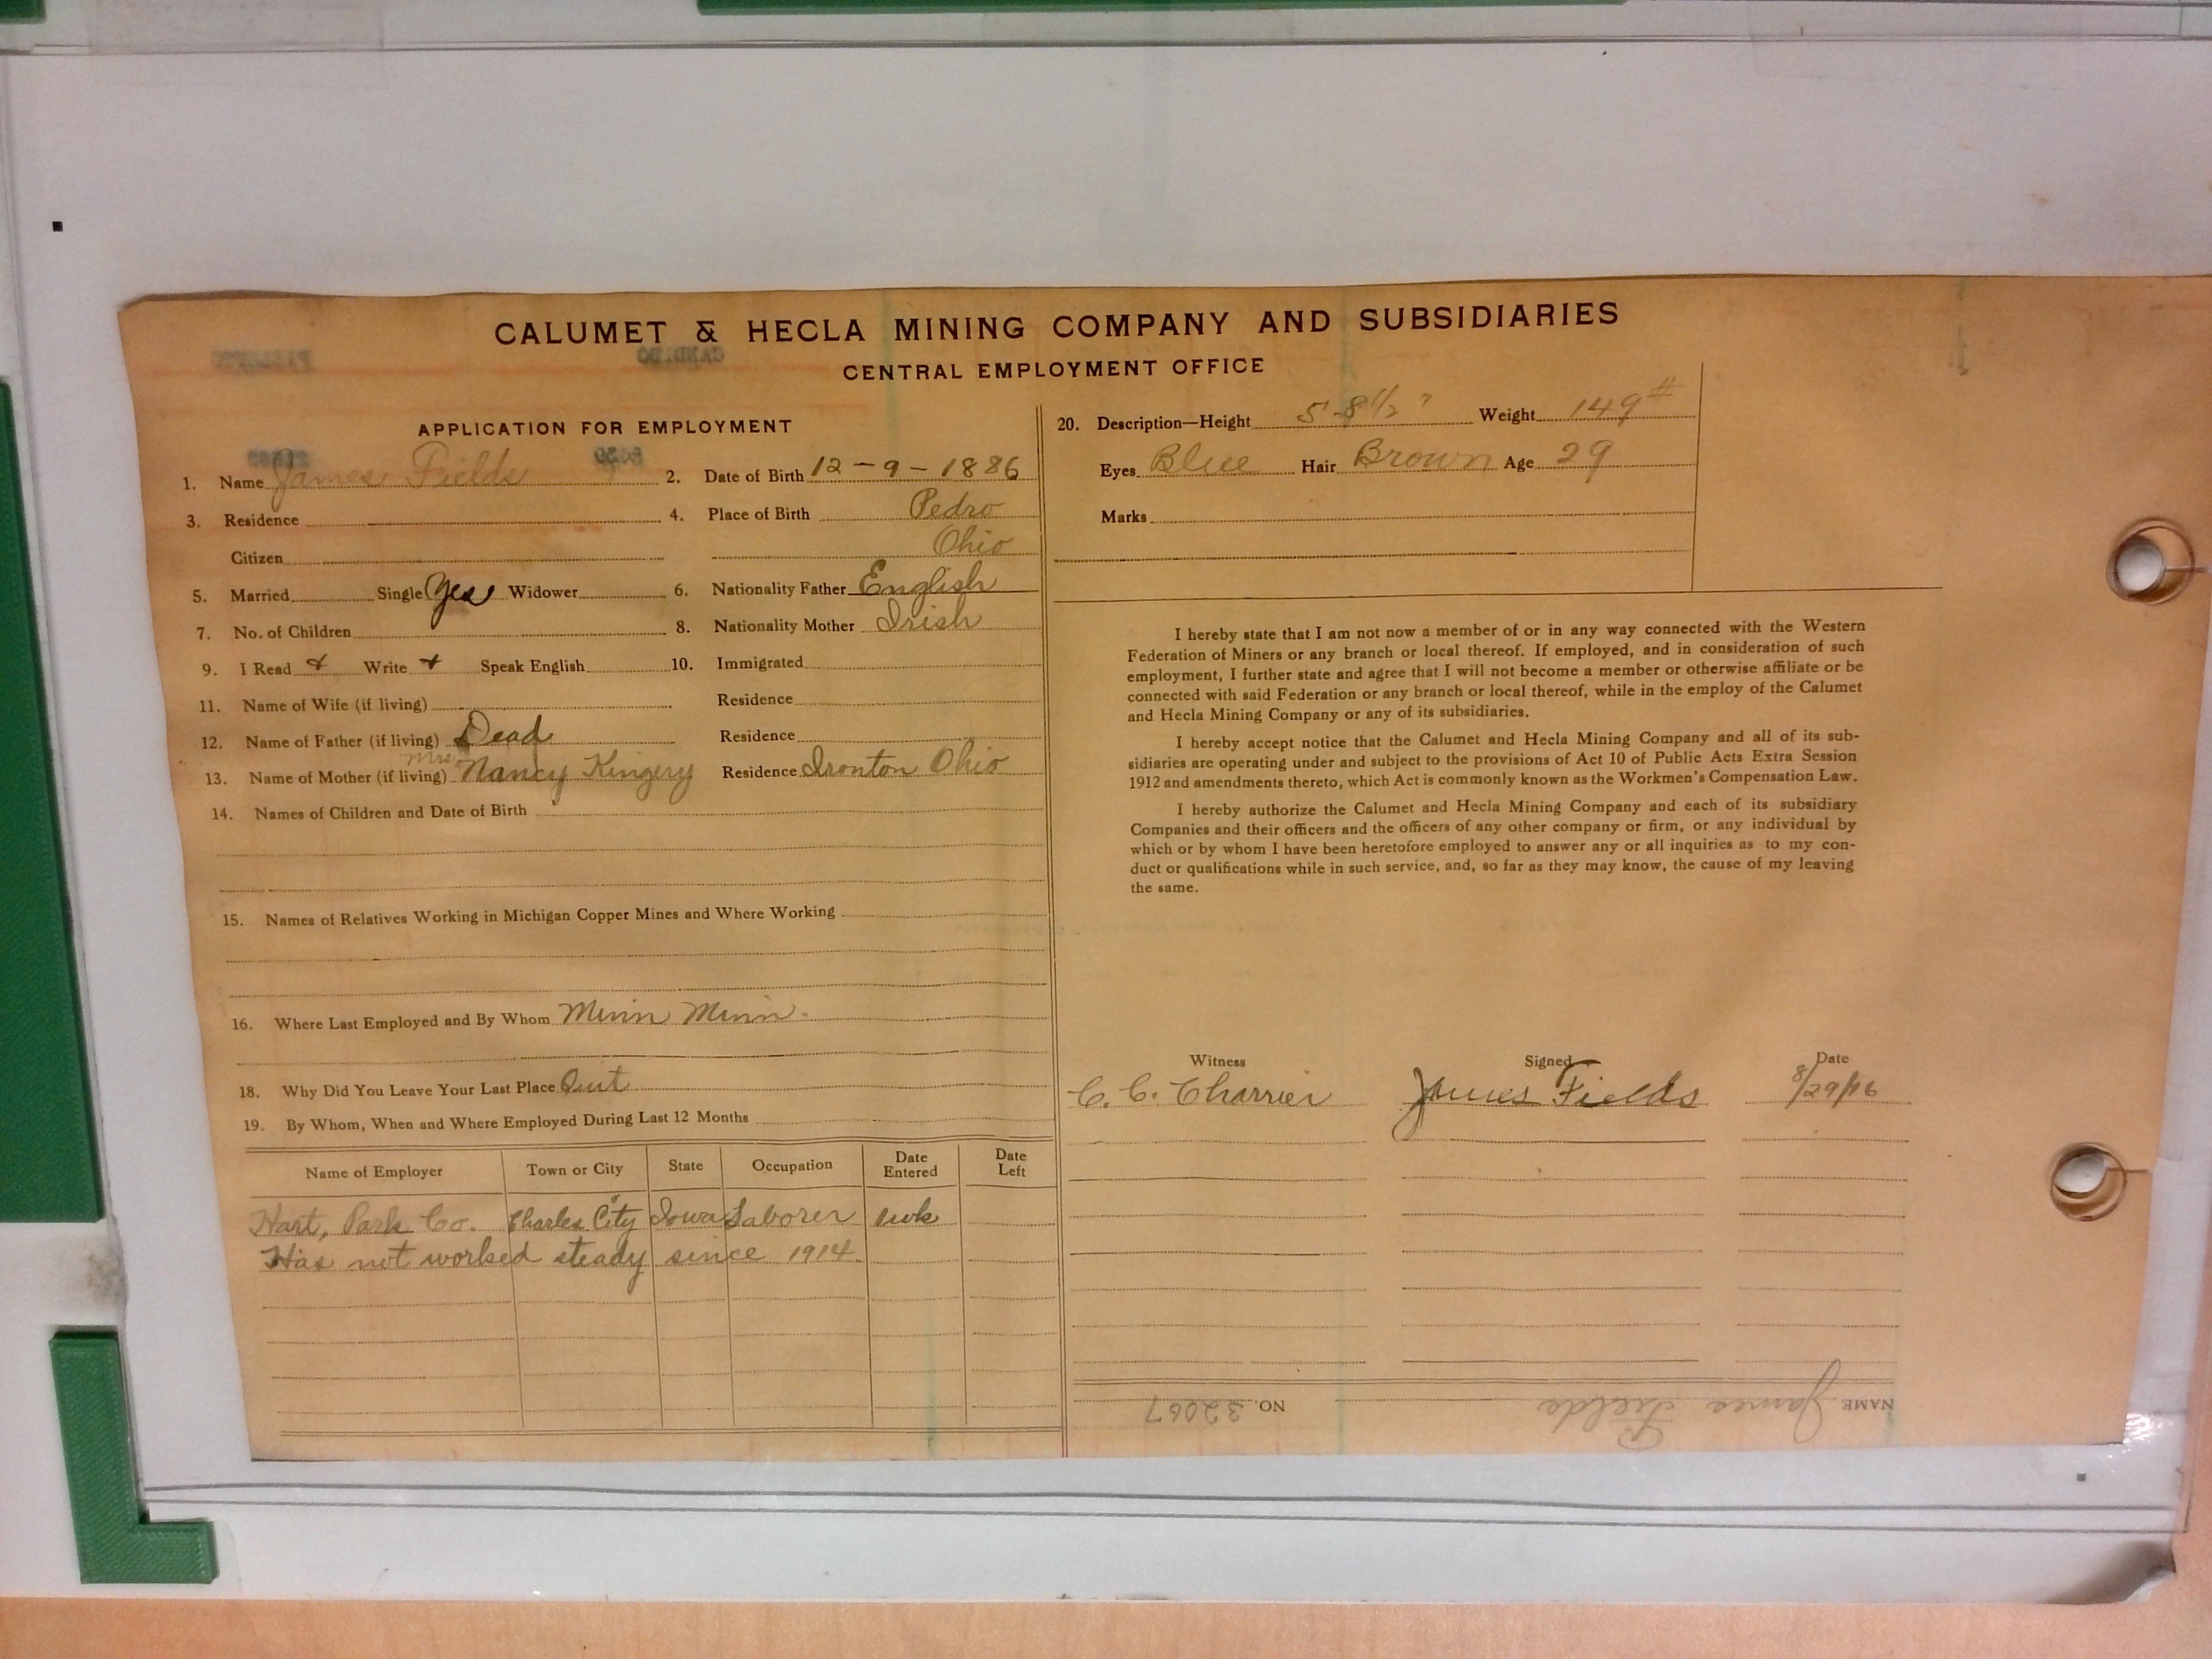 CALUMET & HECLA MINING COMPANY AND SUBSIDIARIES
CENTRAL EMPLOYMENT OFFICE
APPLICATION FOR EMPLOYMENT
1. Name James Fields 2. Date of Birth 12-9-1886
3. Residence 4. Place of Birth Pedro
Citizen Ohio
5. Married Single Yes Widower 6. Nationality Father English
7. No. of Children 8. Nationality Mother Irish
9. I Read Write Speak English 10. Immigrated
11. Name of Wife (if living) Residence
12. Name of Father (if living) Dead Residence
13. Name of Mother (if living) Mrs Nancy Kingery Residence Ironton Ohio
14. Names of Children and Date of Birth
15. Names of Relatives Working in Michigan Copper Mines and Where Working
16. Where Last Employed and By Whom Minn Minn.
18. Why Did You Leave Your Last Place Quit
19. By Whom, When and Where Employed During Last 12 Months
Name of Employer Town or City State Occupation Date Entered Date Left
Hart, Park Co. Charles City Iowa Laborer 1 wk
Has not worked steady since 1914.
20. Description—Height 5'-8 1/2" Weight 149#
Eyes Blue Hair Brown Age 29
Marks
I hereby state that I am not now a member of or in any way connected with the Western
Federation of Miners or any branch or local thereof. If employed, and in consideration of such
employment, I further state and agree that I will not become a member or otherwise affiliate or be
connected with said Federation or any branch or local thereof, while in the employ of the Calumet
and Hecla Mining Company or any of its subsidiaries.
I hereby accept notice that the Calumet and Hecla Mining Company and all of its sub-
sidiaries are operating under and subject to the provisions of Act 10 of Public Acts Extra Session
1912 and amendments thereto, which Act is commonly known as the Workmen's Compensation Law.
I hereby authorize the Calumet and Hecla Mining Company and each of its subsidiary
Companies and their officers and the officers of any other company or firm, or any individual by
which or by whom I have been heretofore employed to answer any or all inquiries as to my con-
duct or qualifications while in such service, and, so far as they may know, the cause of my leaving
the same.
Witness Signed Date
C. C. Charrier James Fields 8/29/16
NAME James Fields NO. 32067